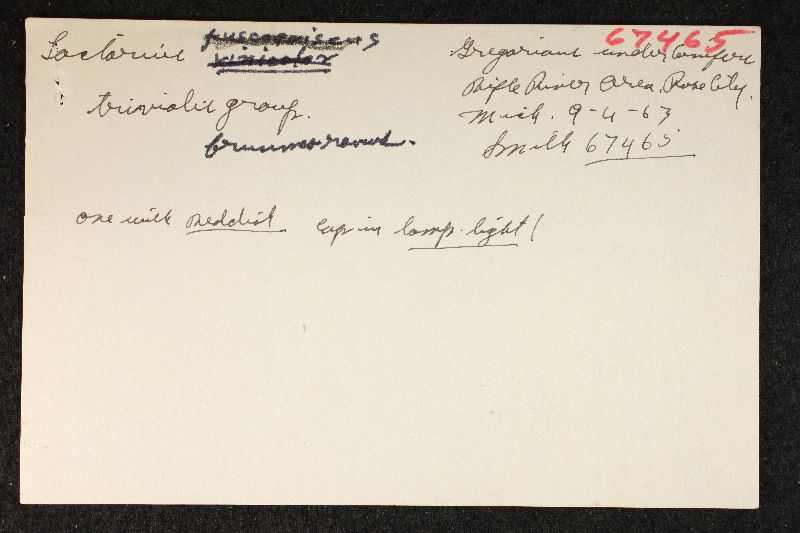 67465
Lactarius
trivialis group.
Gregarious under conifers
Rifle River Area, Rose City,
Mich. 9-4-63
Smith 67465
one with reddish cap in lamp-light!